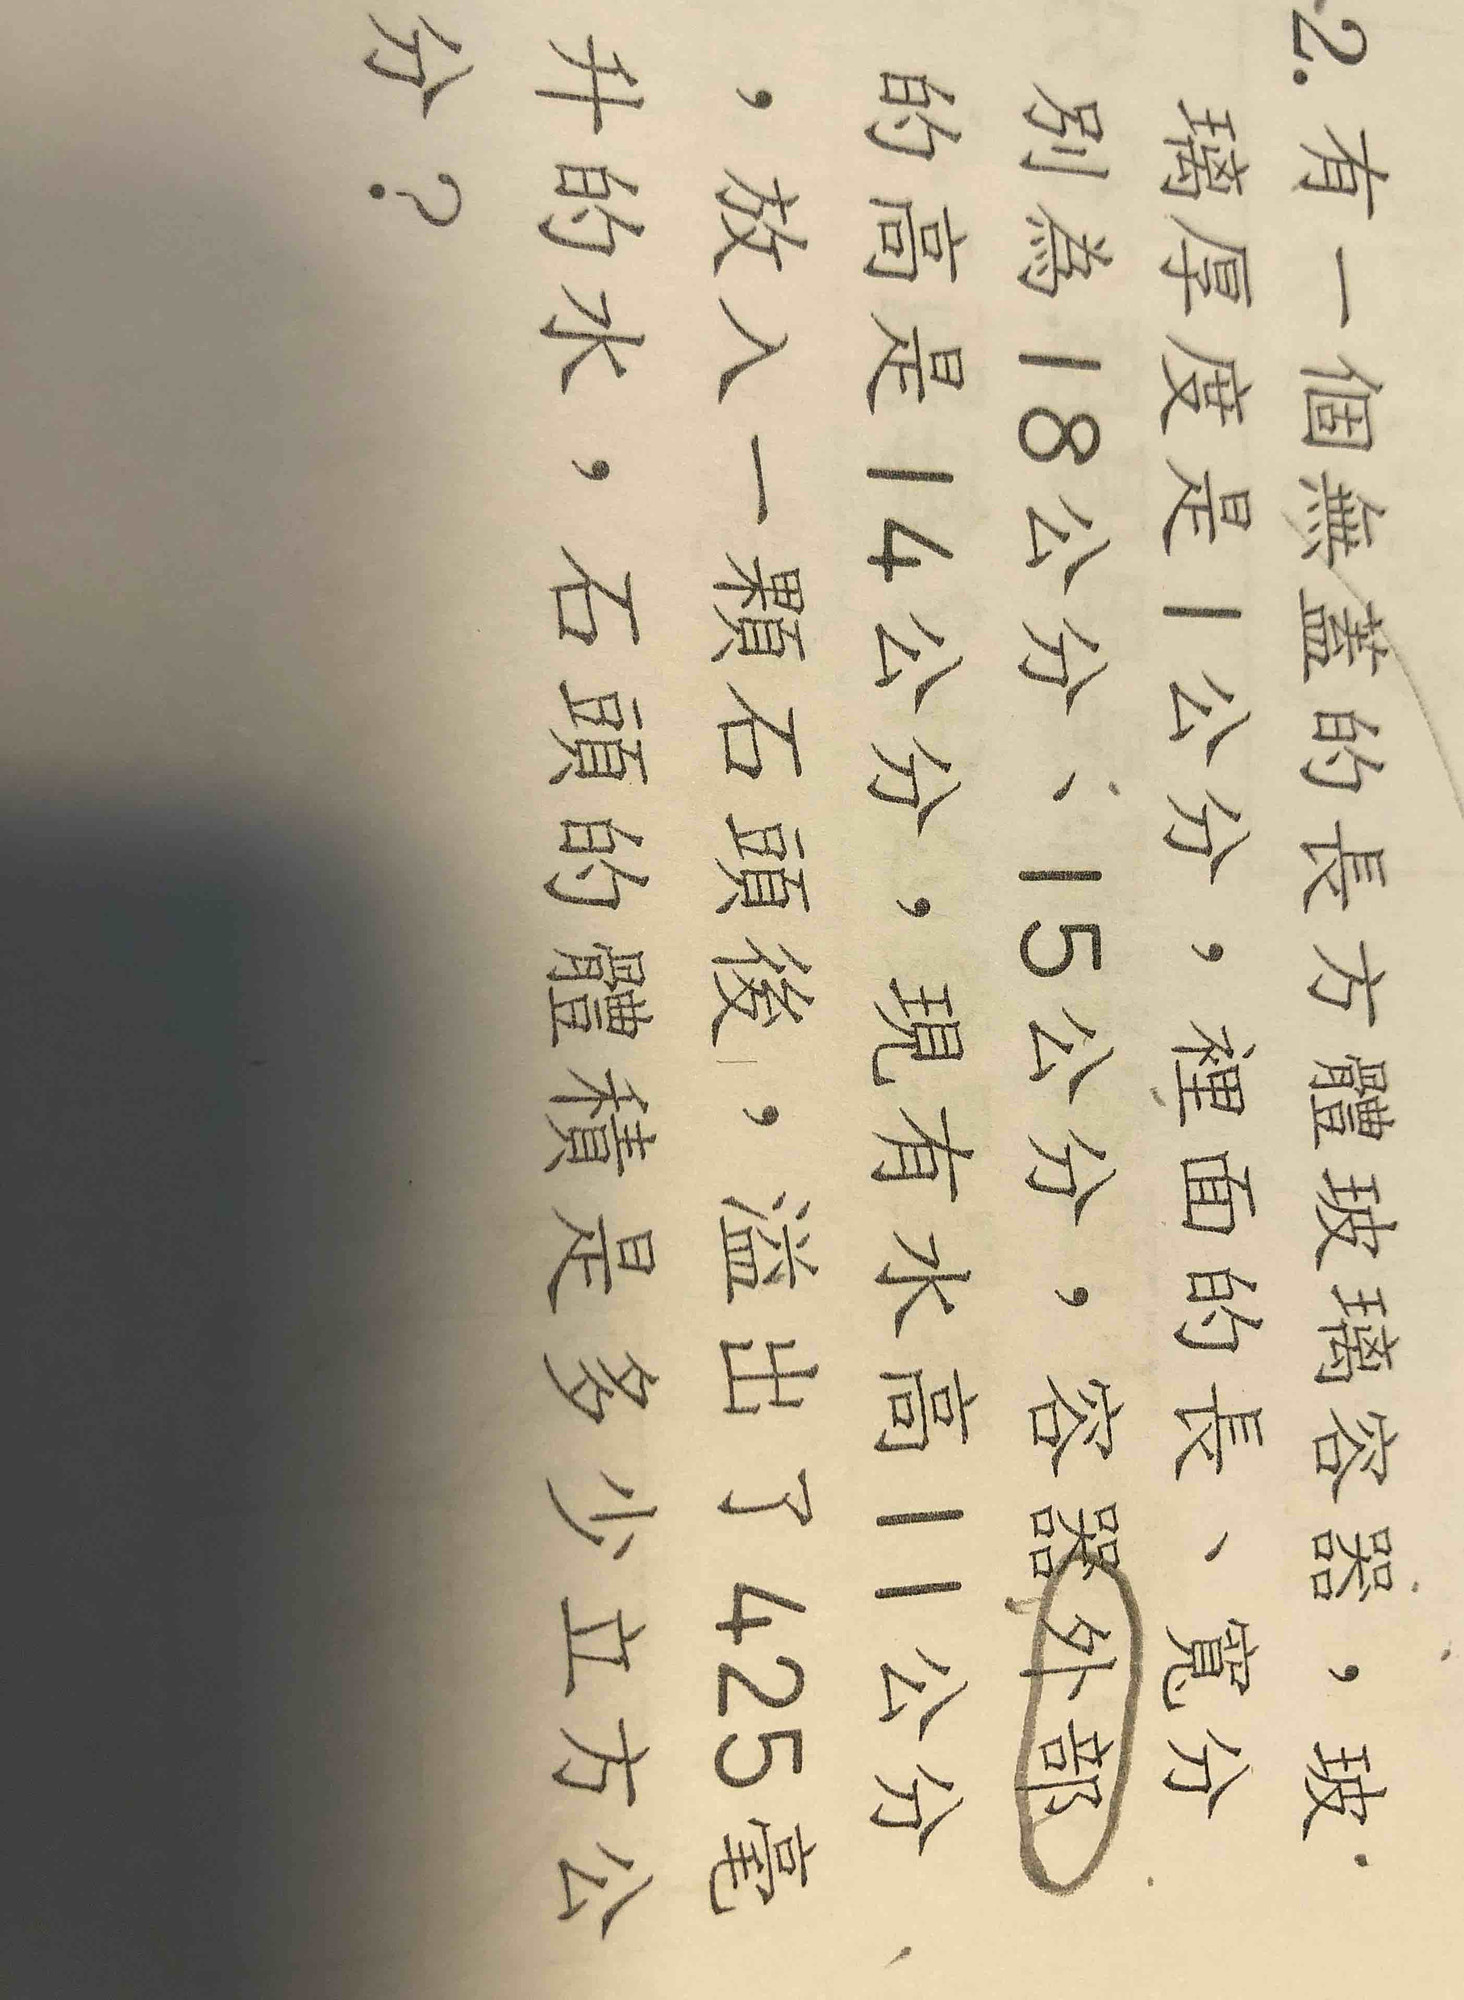 2. 有一個無蓋的長方體玻璃容器，玻
璃厚度是1公分，裡面的長、寬分
別為18公分、15公分，容器外部
的高是14公分，現有水高11公分
，放入一顆石頭後，溢出了425毫
升的水，石頭的體積是多少立方公
分？